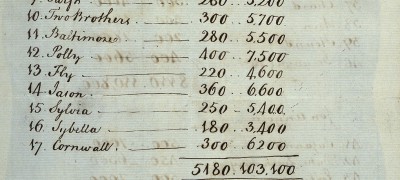 260 .. 5,200
10. Two Brothers. 300 .. 5,700
11. Baltimore 280 .. 5,500
12. Polly 400 .. 7,500
13. Fly 220 .. 4,600
14. Jason. 360 .. 6,600
15 Sylvia 250 - 5,400.
16. Sybella .180 .. 3,400
17. Cornwall. 300 .. 6200
5180 .. 103,100